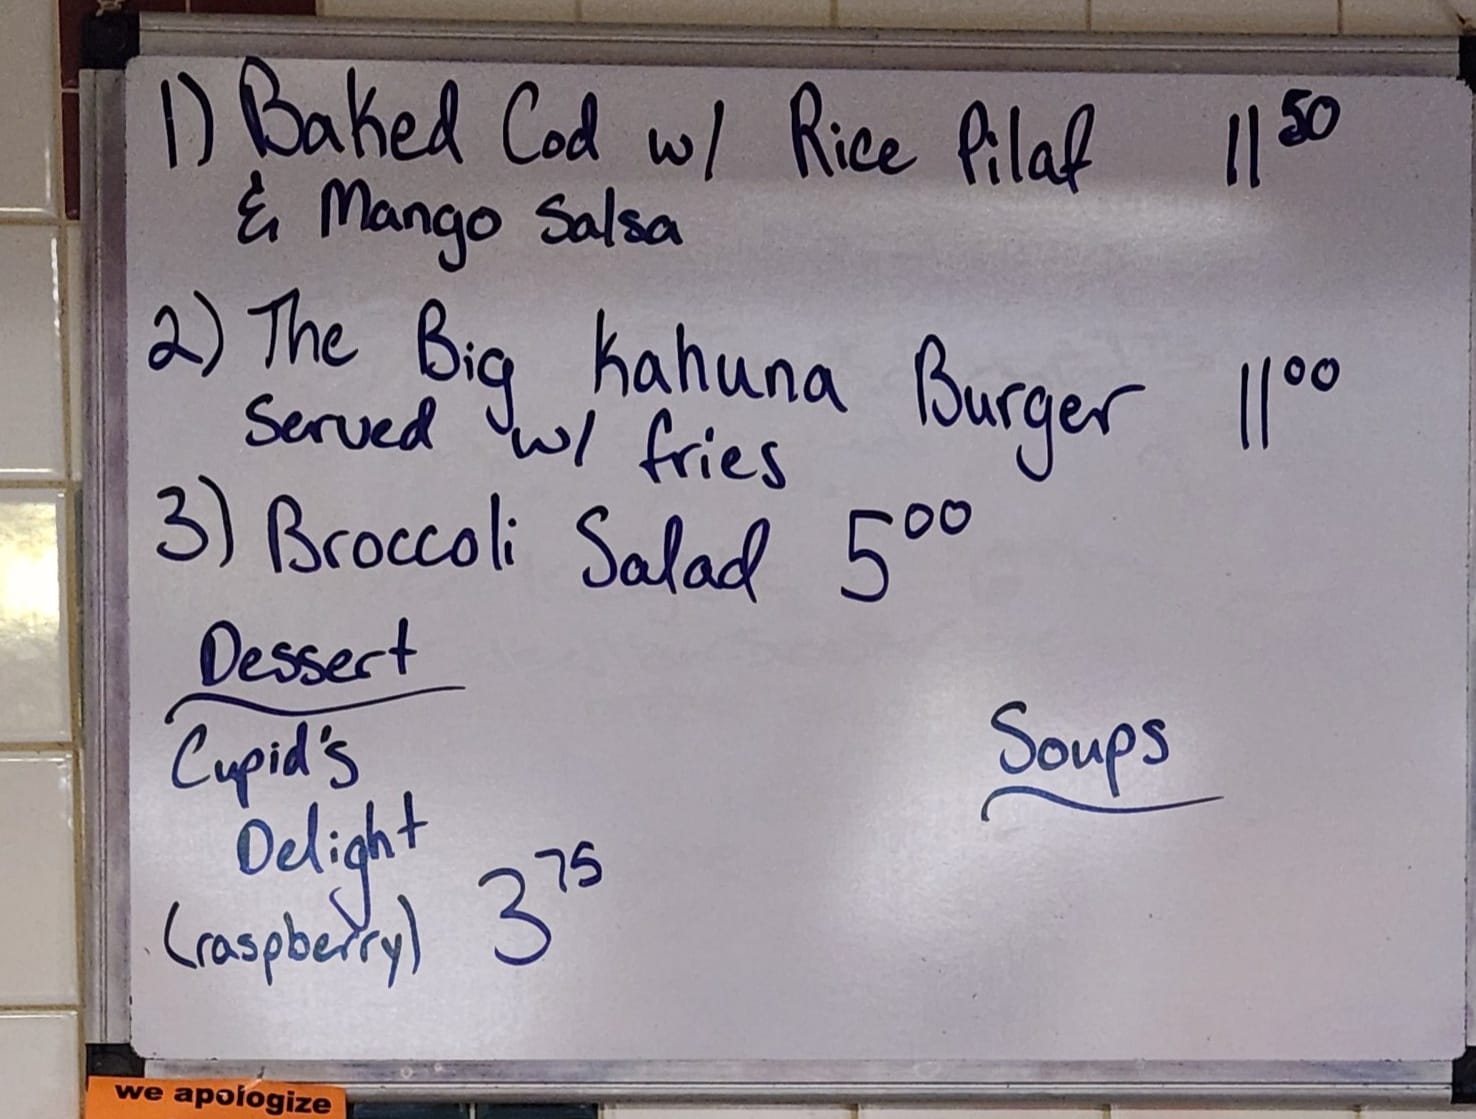 1) Baked Cod w/ Rice Pilaf 11 50
& Mango Salsa
2) The Big Kahuna Burger 11 00
Served w/ fries
3) Broccoli Salad 5 00
Dessert
Cupid's
Delight
(raspberry) 3 75
Soups
we apologize